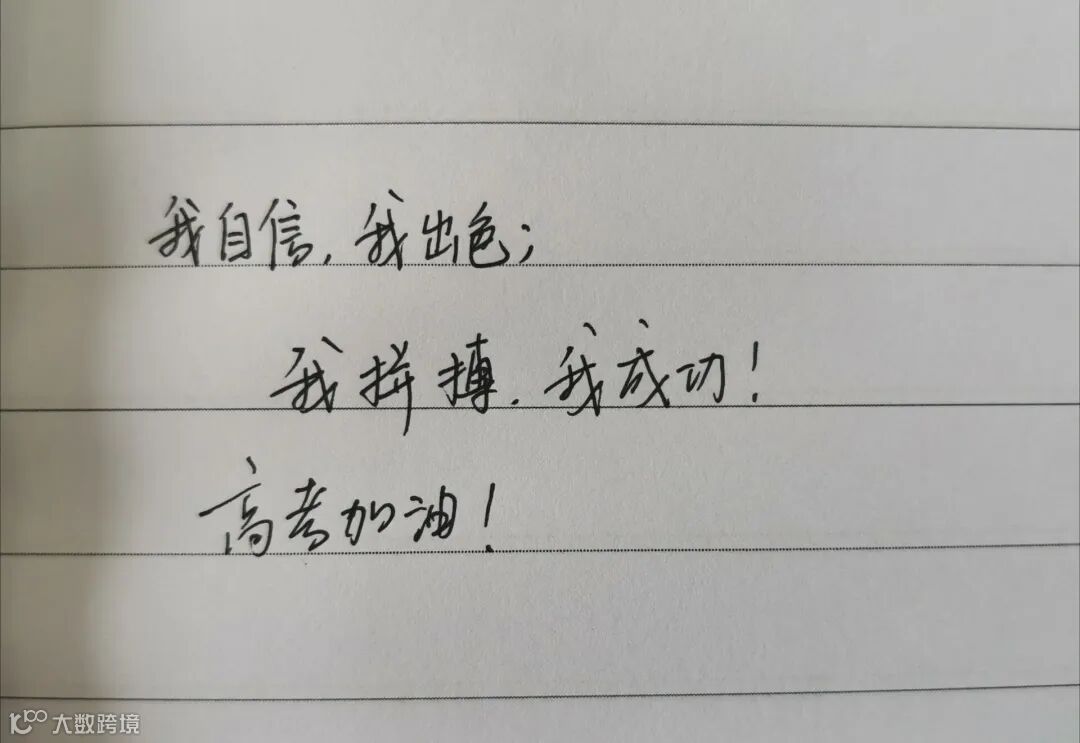 我自信,我出色;
我拼搏.我成功!
高考加油!
大数跨境